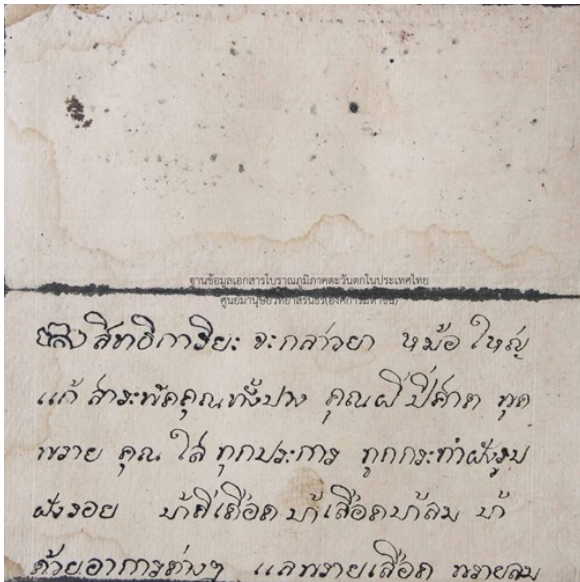 ฐานข้อมูลเอกสารโบราณภูมิภาคตะวันตกในประเทศไทย
ศูนย์มานุษยวิทยาสิรินธร (องค์การมหาชน)
สิทธิการิยะ จะกล่าวยา หม้อ ใหญ่
แก้ สาระพัดคุณทั้งปวง คุณผี ปีศาต พูด
พราย คุณ ใส่ ทุกประการ ถูกกระทำฝังรูบ
ฝังรอย บ้าดีเดือด บ้าเลือดบ้าลม บ้า
ด้วยอาการต่างๆ แลพรายเลือด พรายลม